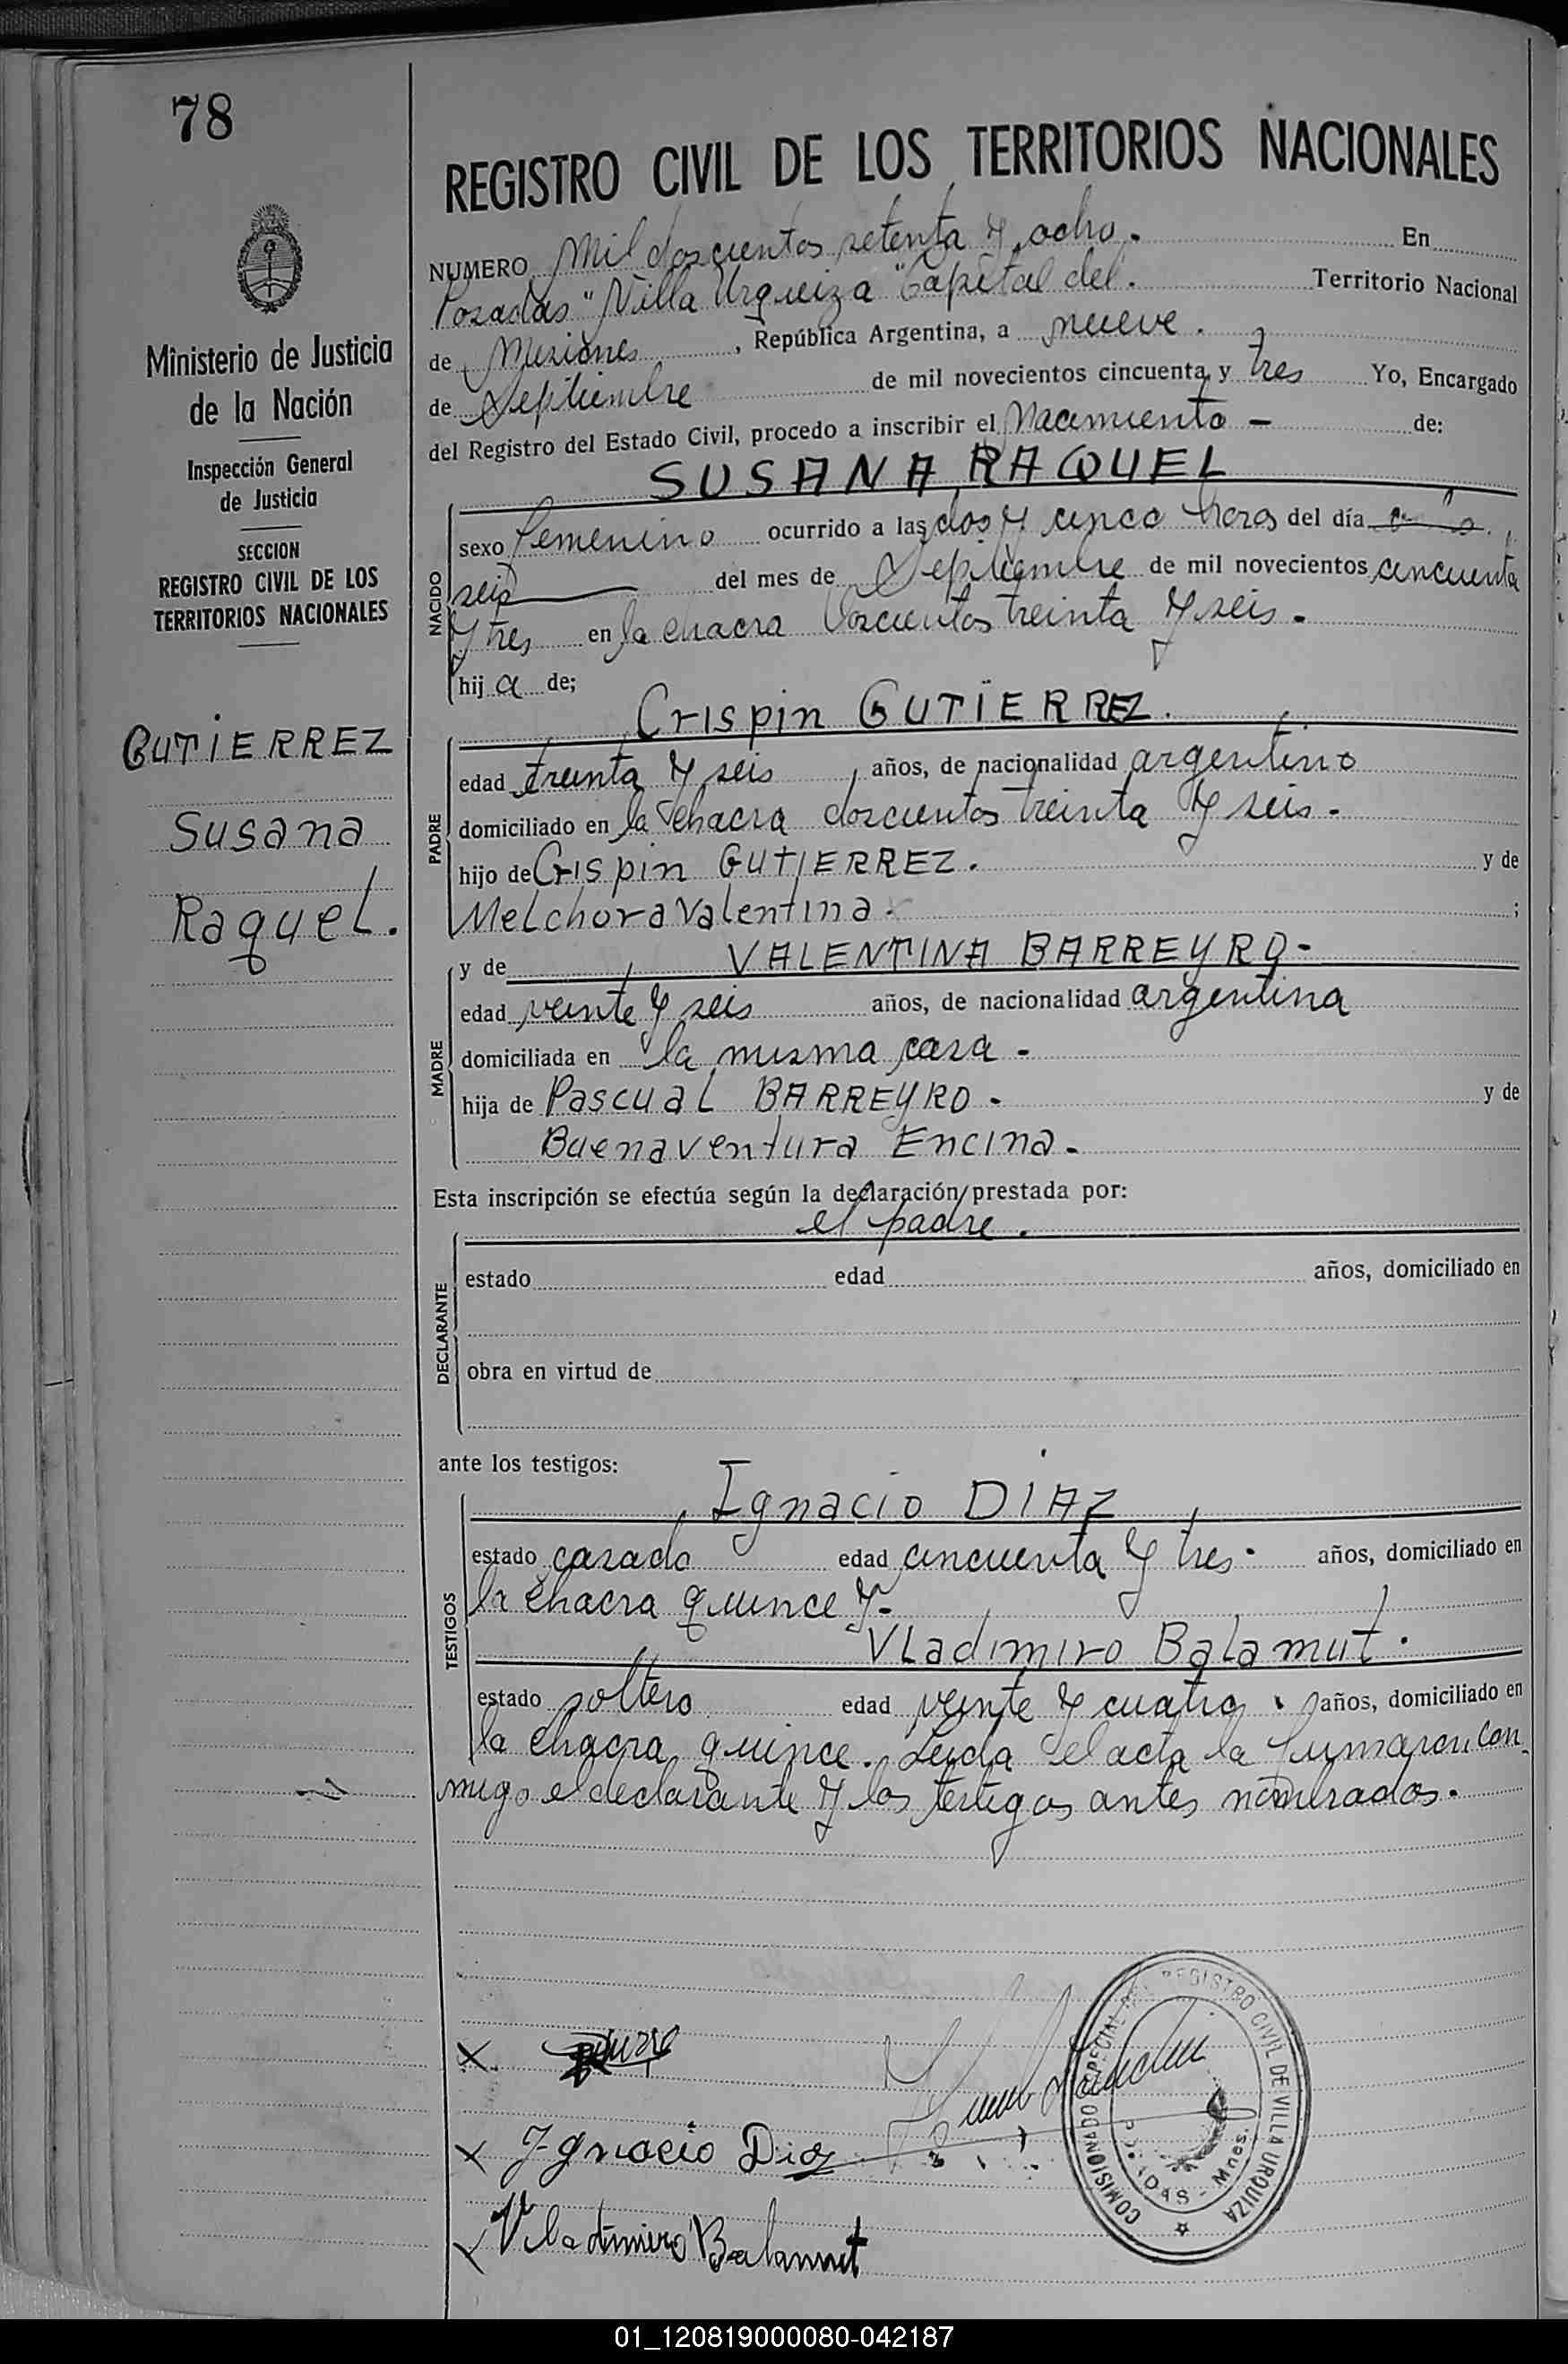 78
REGISTRO CIVIL DE LOS TERRITORIOS NACIONALES
NUMERO Mil doscientos setenta y ocho. En
Posadas "Villa Urquiza" Capital del. Territorio Nacional
de Misiones, República Argentina, a nueve.
de Septiembre de mil novecientos cincuenta y tres Yo, Encargado
del Registro del Estado Civil, procedo a inscribir el Nacimiento - de:
SUSANA RAQUEL
NACIDO
sexo femenino ocurrido a las dos y cinco horas del día
seis del mes de Septiembre de mil novecientos cincuenta
y tres en la chacra doscientos treinta y seis.
hij a de;
Crispin GUTIERREZ.
PADRE
edad treinta y seis, años, de nacionalidad argentino
domiciliado en la chacra doscientos treinta y seis.
hijo de Crispin GUTIERREZ. y de
Melchora Valentina. ;
y de VALENTINA BARREYRO-
MADRE
edad veinte y seis años, de nacionalidad argentina
domiciliada en la misma casa -
hija de Pascual BARREYRO - y de
Buenaventura Encina.
Esta inscripción se efectúa según la declaración prestada por:
el padre.
DECLARANTE
estado edad años, domiciliado en
obra en virtud de
ante los testigos:
Ignacio DIAZ
TESTIGOS
estado casado edad cincuenta y tres. años, domiciliado en
la chacra quince y-
Vladimiro Balamut.
estado soltero edad veinte y cuatro. años, domiciliado en
la chacra quince. Leida el acta la firmaron con
migo el declarante y los testigos antes nombrados.
X
X Ignacio Diaz
X Vladimiro Balamut
COMISIONADO ESPECIAL DEL REGISTRO CIVIL DE VILLA URQUIZA
POSADAS - Mnes.
Ministerio de Justicia
de la Nación
Inspección General
de Justicia
SECCION
REGISTRO CIVIL DE LOS
TERRITORIOS NACIONALES
GUTIERREZ
Susana
Raquel.
01_120819000080-042187